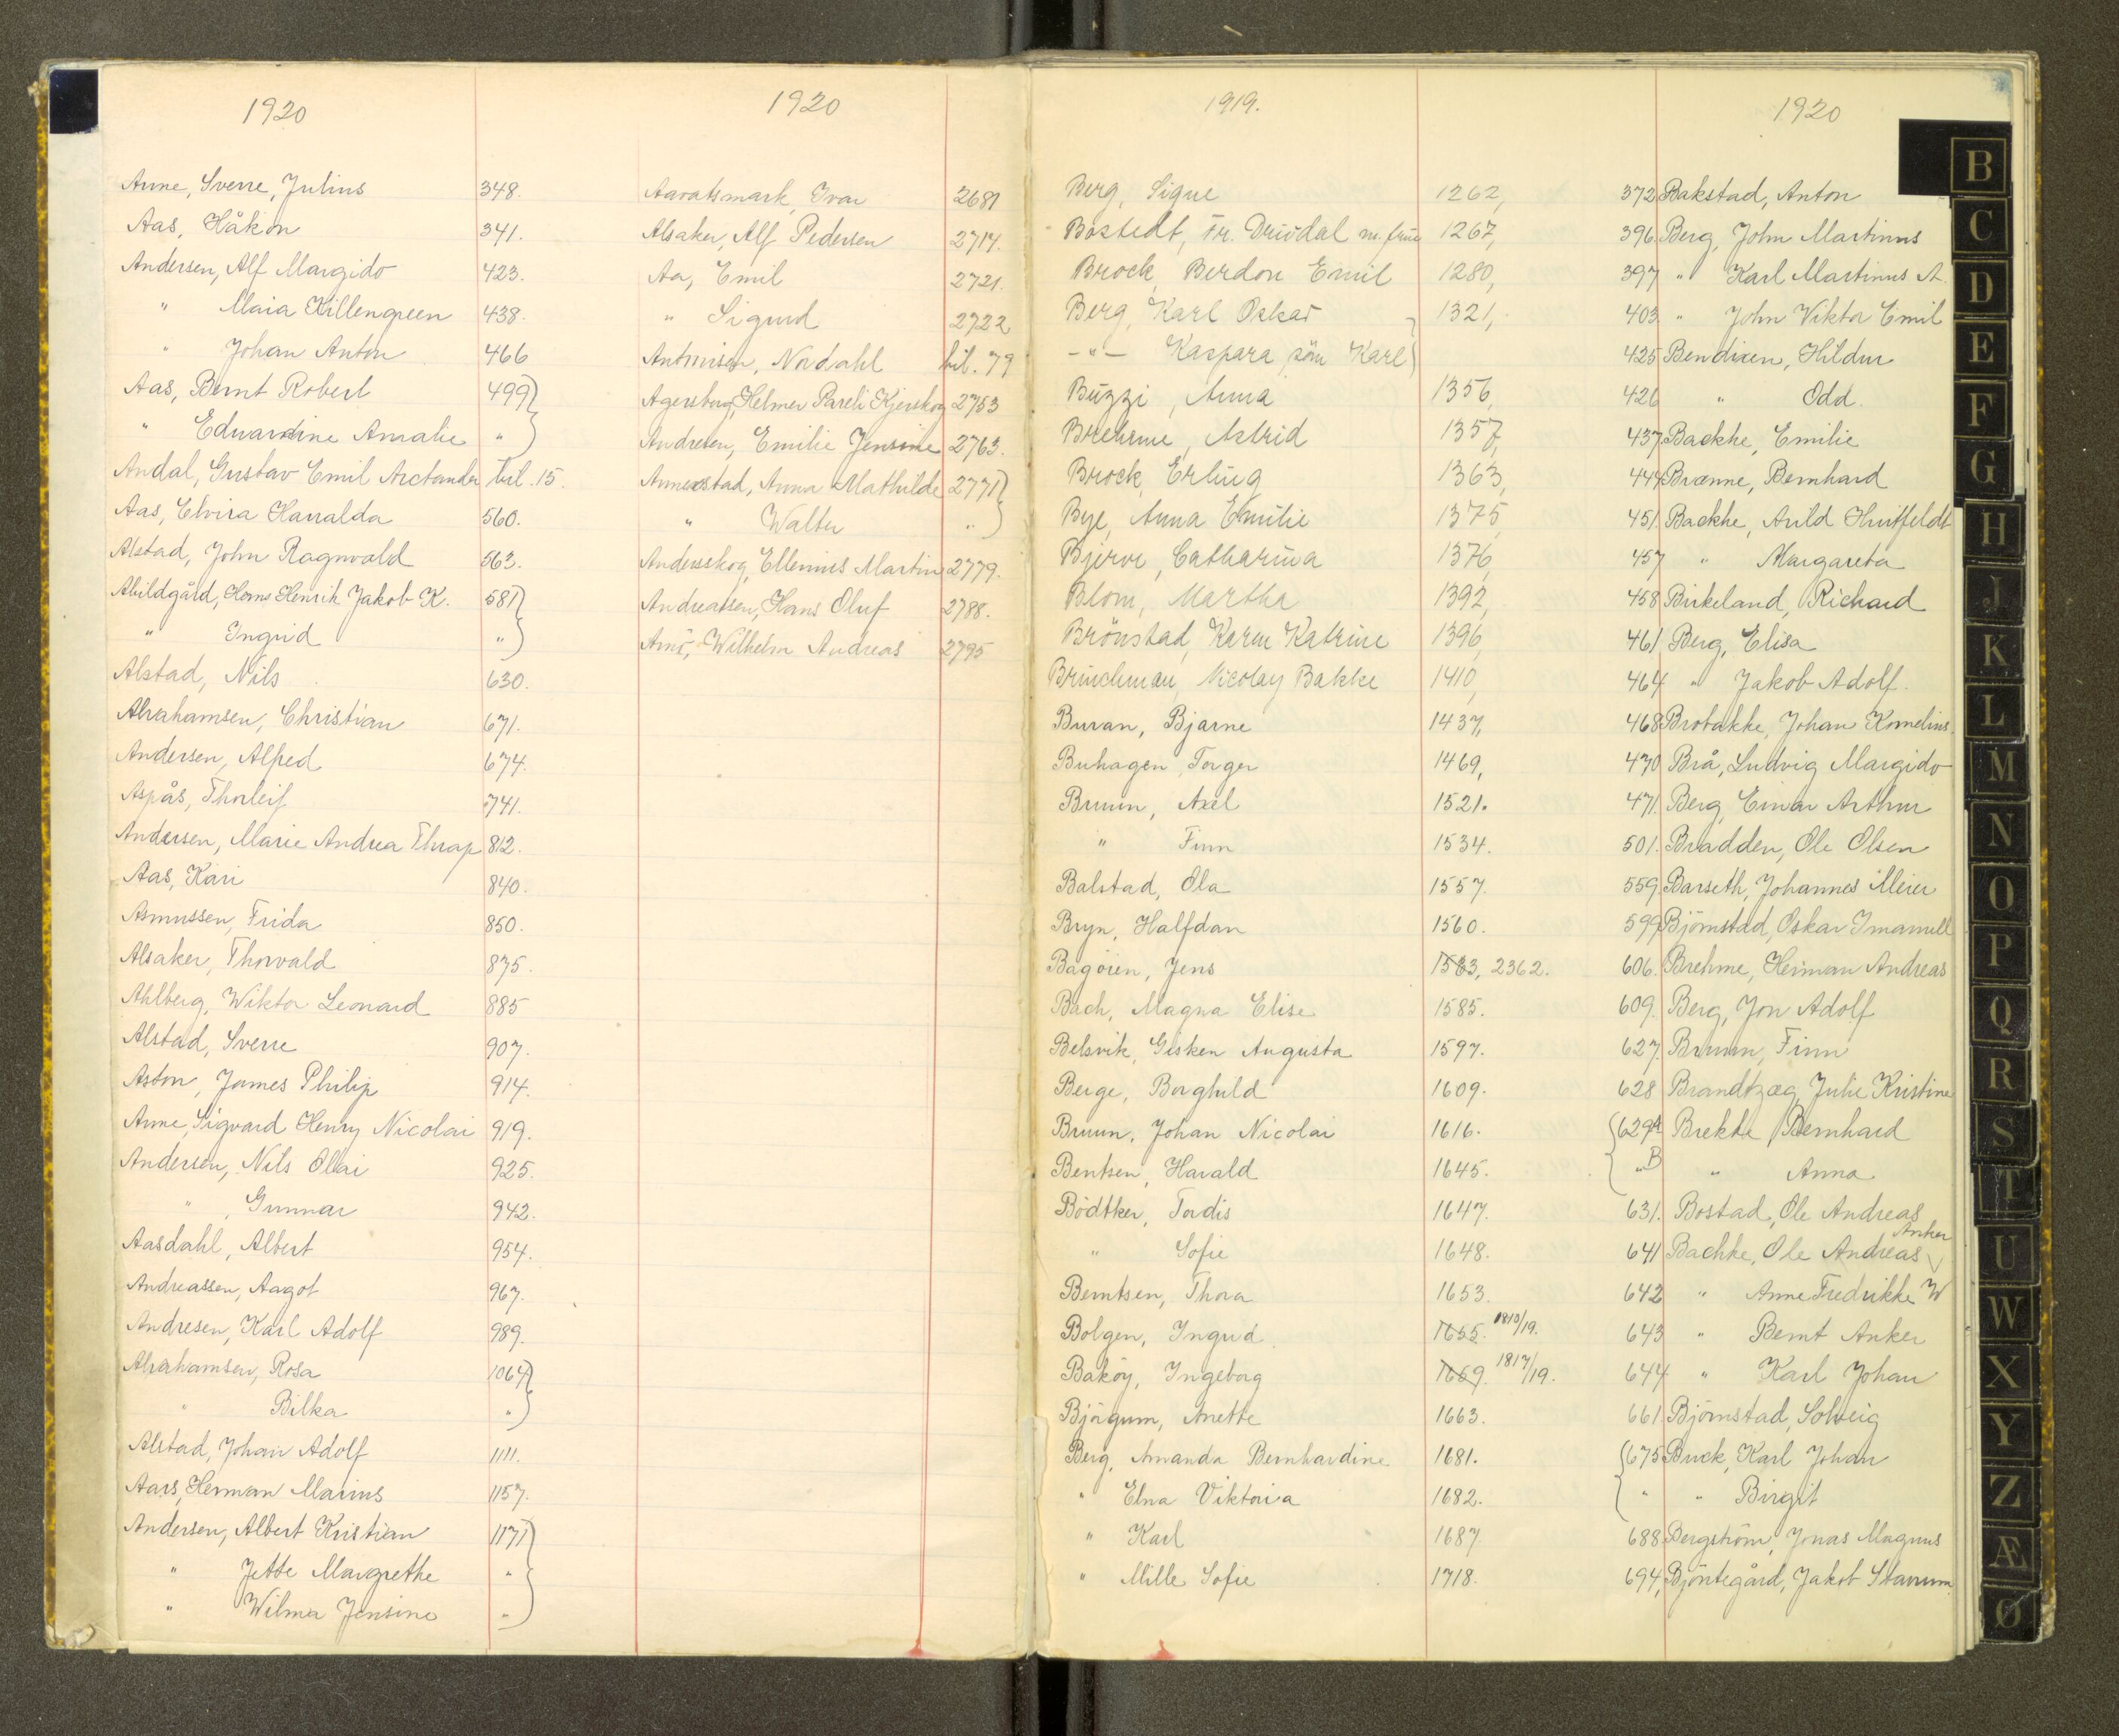 1920
Anne, Sverre, Julius 348.
Aas, Håkon 341.
Andersen, Alf Margido 423.
" Maia Killengreen 438.
" Johan Anton 466
Aas, Bernt Robert 499
" Edvardine Amalie "
Andal, Gustav Emil Arctander bil. 15.
Aas, Elvira Haralda 560.
Alstad, John Ragnvald 563.
Abildgård, Hans Henrik Jakob K. 581
" Ingrid "
Alstad, Nils 630.
Abrahamsen, Christian 671.
Andersen, Alfred 674.
Aspås, Thorleif 741.
Andersen, Marie Andrea Thrap 812.
Aas, Kari 840.
Asmussen, Frida 850.
Alsaker, Thorvald 875.
Ahlberg, Wiktor Leonard 885
Alstad, Sverre 907.
Aston, James Philip 914.
Anne, Sigvard Henry Nicolai 919.
Andersen, Nils Olai 925.
" , Gunnar 942.
Aasdahl, Albert 954.
Andreassen, Aagot 967.
Andresen, Karl Adolf 989.
Abrahamsen, Rosa 1064
" Bilka "
Alstad, Johan Adolf 1111.
Aars, Herman Marius 1157.
Andersen, Albert Kristian 1171
" Jette Margrethe "
" Wilma Jensine "
1920
Aavatsmark, Ivar 2681
Alsaker, Alf Pedersen 2714.
Aa, Emil 2721.
" Sigurd 2722
Antonisen, Nordahl bil. 79
Agersborg, Helmer Pareli Kjerskog 2753
Andresen, Emilie Jensine 2763.
Annexstad, Anna Mathilde 2771
" Walter "
Andersskog, Ellenius Martin 2779.
Andreassen, Hans Oluf 2788.
Arnø, Wilhelm Andreas 2795
1919.
Berg, Signe 1262,
Bostedt, Fr. Drivdal m. frue 1267,
Brock, Berdon Emil 1280,
Berg, Karl Oskar 1321,
-"- Kaspara, som Karl
Buzzi, Anna 1356,
Brehme, Astrid 1357,
Brock, Erling 1363,
Bye, Anna Emilie 1375,
Bjerve, Catharina 1376,
Blom, Martha 1392,
Brönstad, Karen Katrine 1396,
Brinchman, Nicolay Bakke 1410,
Buran, Bjarne 1437,
Buhagen, Torger 1469,
Bruun, Axel 1521.
" Finn 1534.
Balstad, Ola 1557.
Bryn, Halfdan 1560.
Bagöien, Jens 1583, 2362.
Bach, Magna Elise 1585.
Belsvik, Gisken Augusta 1597.
Berge, Borghild 1609.
Bruun, Johan Nicolai 1616.
Bentsen, Harald 1645.
Bödtker, Tordis 1647.
" Sofie 1648.
Berntsen, Thora 1653.
Bolgen, Ingrid 1655. 1810/19.
Baköy, Ingeborg 1659. 1817/19.
Bjørgum, Anette 1663.
Berg, Amanda Bernhardine 1681.
" Elna Viktoria 1682.
" Karl 1687
" Mille Sofie 1718.
1920
372 Bakstad, Anton
396. Berg, John Martinus
397 " Karl Martinus A.
403 " John Viktor Emil
425 Bendixen, Hildur
426 " Odd.
437 Backke, Emilie
444 Brænne, Bernhard
451. Backke, Arild Huitfeldt
457 " Margareta
458 Birkeland, Richard
461 Berg, Elisa
464 " Jakob Adolf.
468 Brobakke, Johan Kornelius.
470 Brå, Ludvig Margido
471. Berg, Einar Arthur
501. Bradden, Ole Olsen
559 Barseth, Johannes Meier
599 Björnstad, Oskar Imanuell
606. Brehme, Herman Andreas
609. Berg, Jon Adolf
627. Bruun, Finn
628 Brandtzæg, Julie Kristine
629A Brekke, Bernhard
" B " Anna
631. Bostad, Ole Andreas
Anker
641 Bachke, Ole Andreas
642 " Anne Fredrikke W
643 " Bernt Anker
644 " Karl Johan
661 Björnstad, Solveig
675 Buck, Karl Johan
" " Birgit
688 Bergström, Jonas Magnus
694, Bjöntegård, Jakob Stavrum
B
C
D
E
F
G
H
J
K
L
M
N
O
P
Q
R
S
T
U
W
X
Y
Z
Æ
Ø